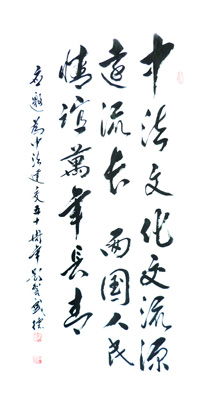 中法文化交流源
远流长 两国人民
情谊萬年长青
应邀为中法建交五十周年